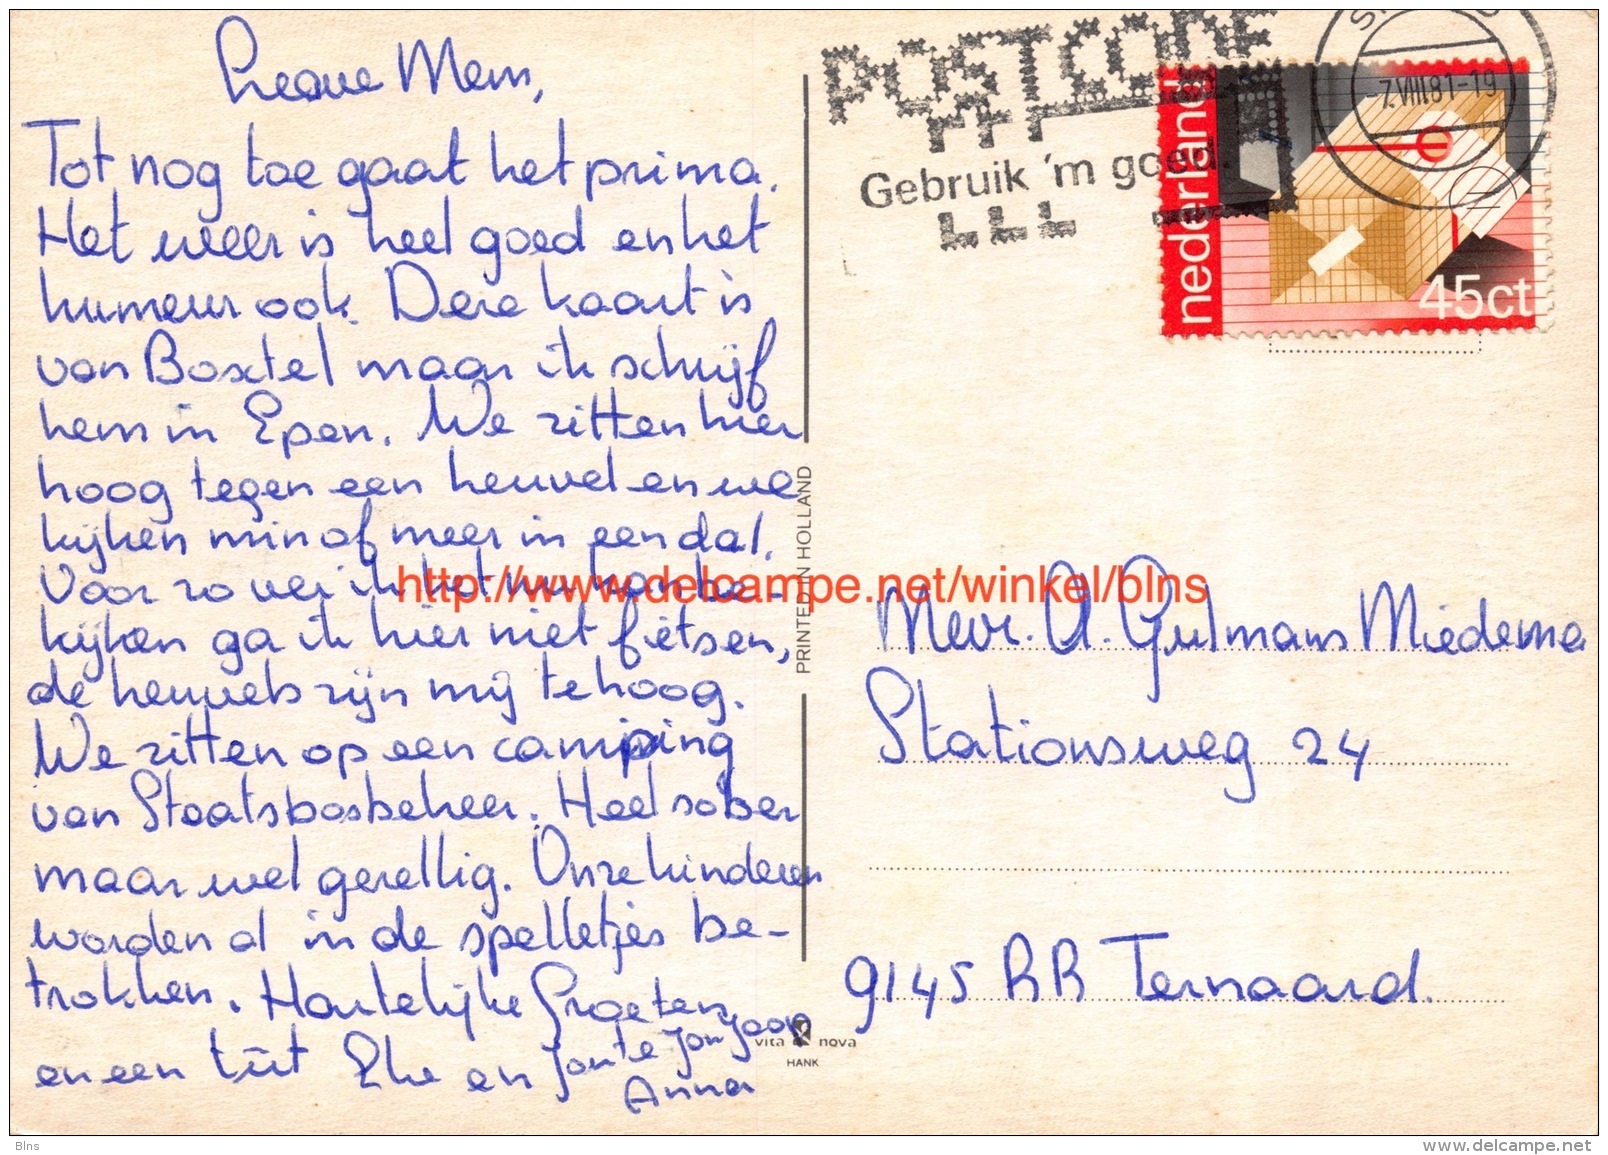 Lieave Mem,
Tot nog toe gaat het prima.
Het weer is heel goed en het
humeur ook. Deze kaart is
van Boxtel maar ik schrijf
hem in Epen. We zitten hier
hoog tegen een heuvel en we
kijken min of meer in een dal.
Voor zo ver ik het nu kan be-
kijken ga ik hier niet fietsen,
de heuvels zijn mij te hoog.
We zitten op een camping
van Staatsbosbeheer. Heel sober
maar wel gezellig. Onze kinderen
worden al in de spelletjes be-
trokken. Hartelijke Groeten
en een tút Eke en Joute Jan Jaap
Anna
POSTCODE
Gebruik 'm goed.
7.VIII.81-19
nederland
45ct
PRINTED IN HOLLAND
http://www.delcampe.net/winkel/blns
Mevr. A. Gulmans Miedema
Stationsweg 24
9145 RR Ternaard.
vita nova
HANK
Blns
www.delcampe.net